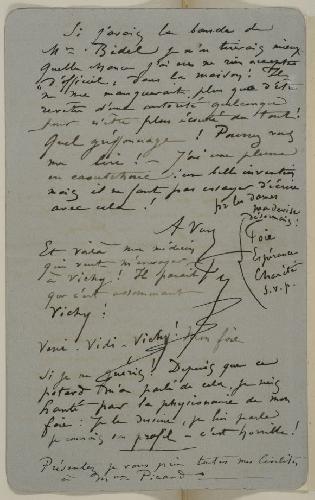 Si j'avais la bande de
Mr Bidel je n'en tirerais mieux
quelle chance j'ai eu de rien accepter
"d'officiel" dans la maison! Il
ne me manquerait plus que d'être
revêtu d'une autorité quelconque
pour n'être plus écouté du tout!
Quel griffonnage! Pourrez vous
me lire! — J'ai une plume
en caoutchouc d'une belle invention
mais il ne faut pas essayer d'écrire
avec cela!
A vous
Et voilà mon médecin
qui veut m'envoyer
à Vichy! Il paraît
que c'est assommant
Vichy!
Veni - Vidi - Vichy! mon foie
Si je me guéris! Depuis que ce
pétard m'a parlé de cela, je suis
hanté par la physionomie de mon
foie: je le dessine, je lui parle
de son profil — c'est horrible!
Présentez je vous prie toutes mes civilités
à Picard
les dames
devise
désormais!
Foie
Espérance
Charité
s.v.p.